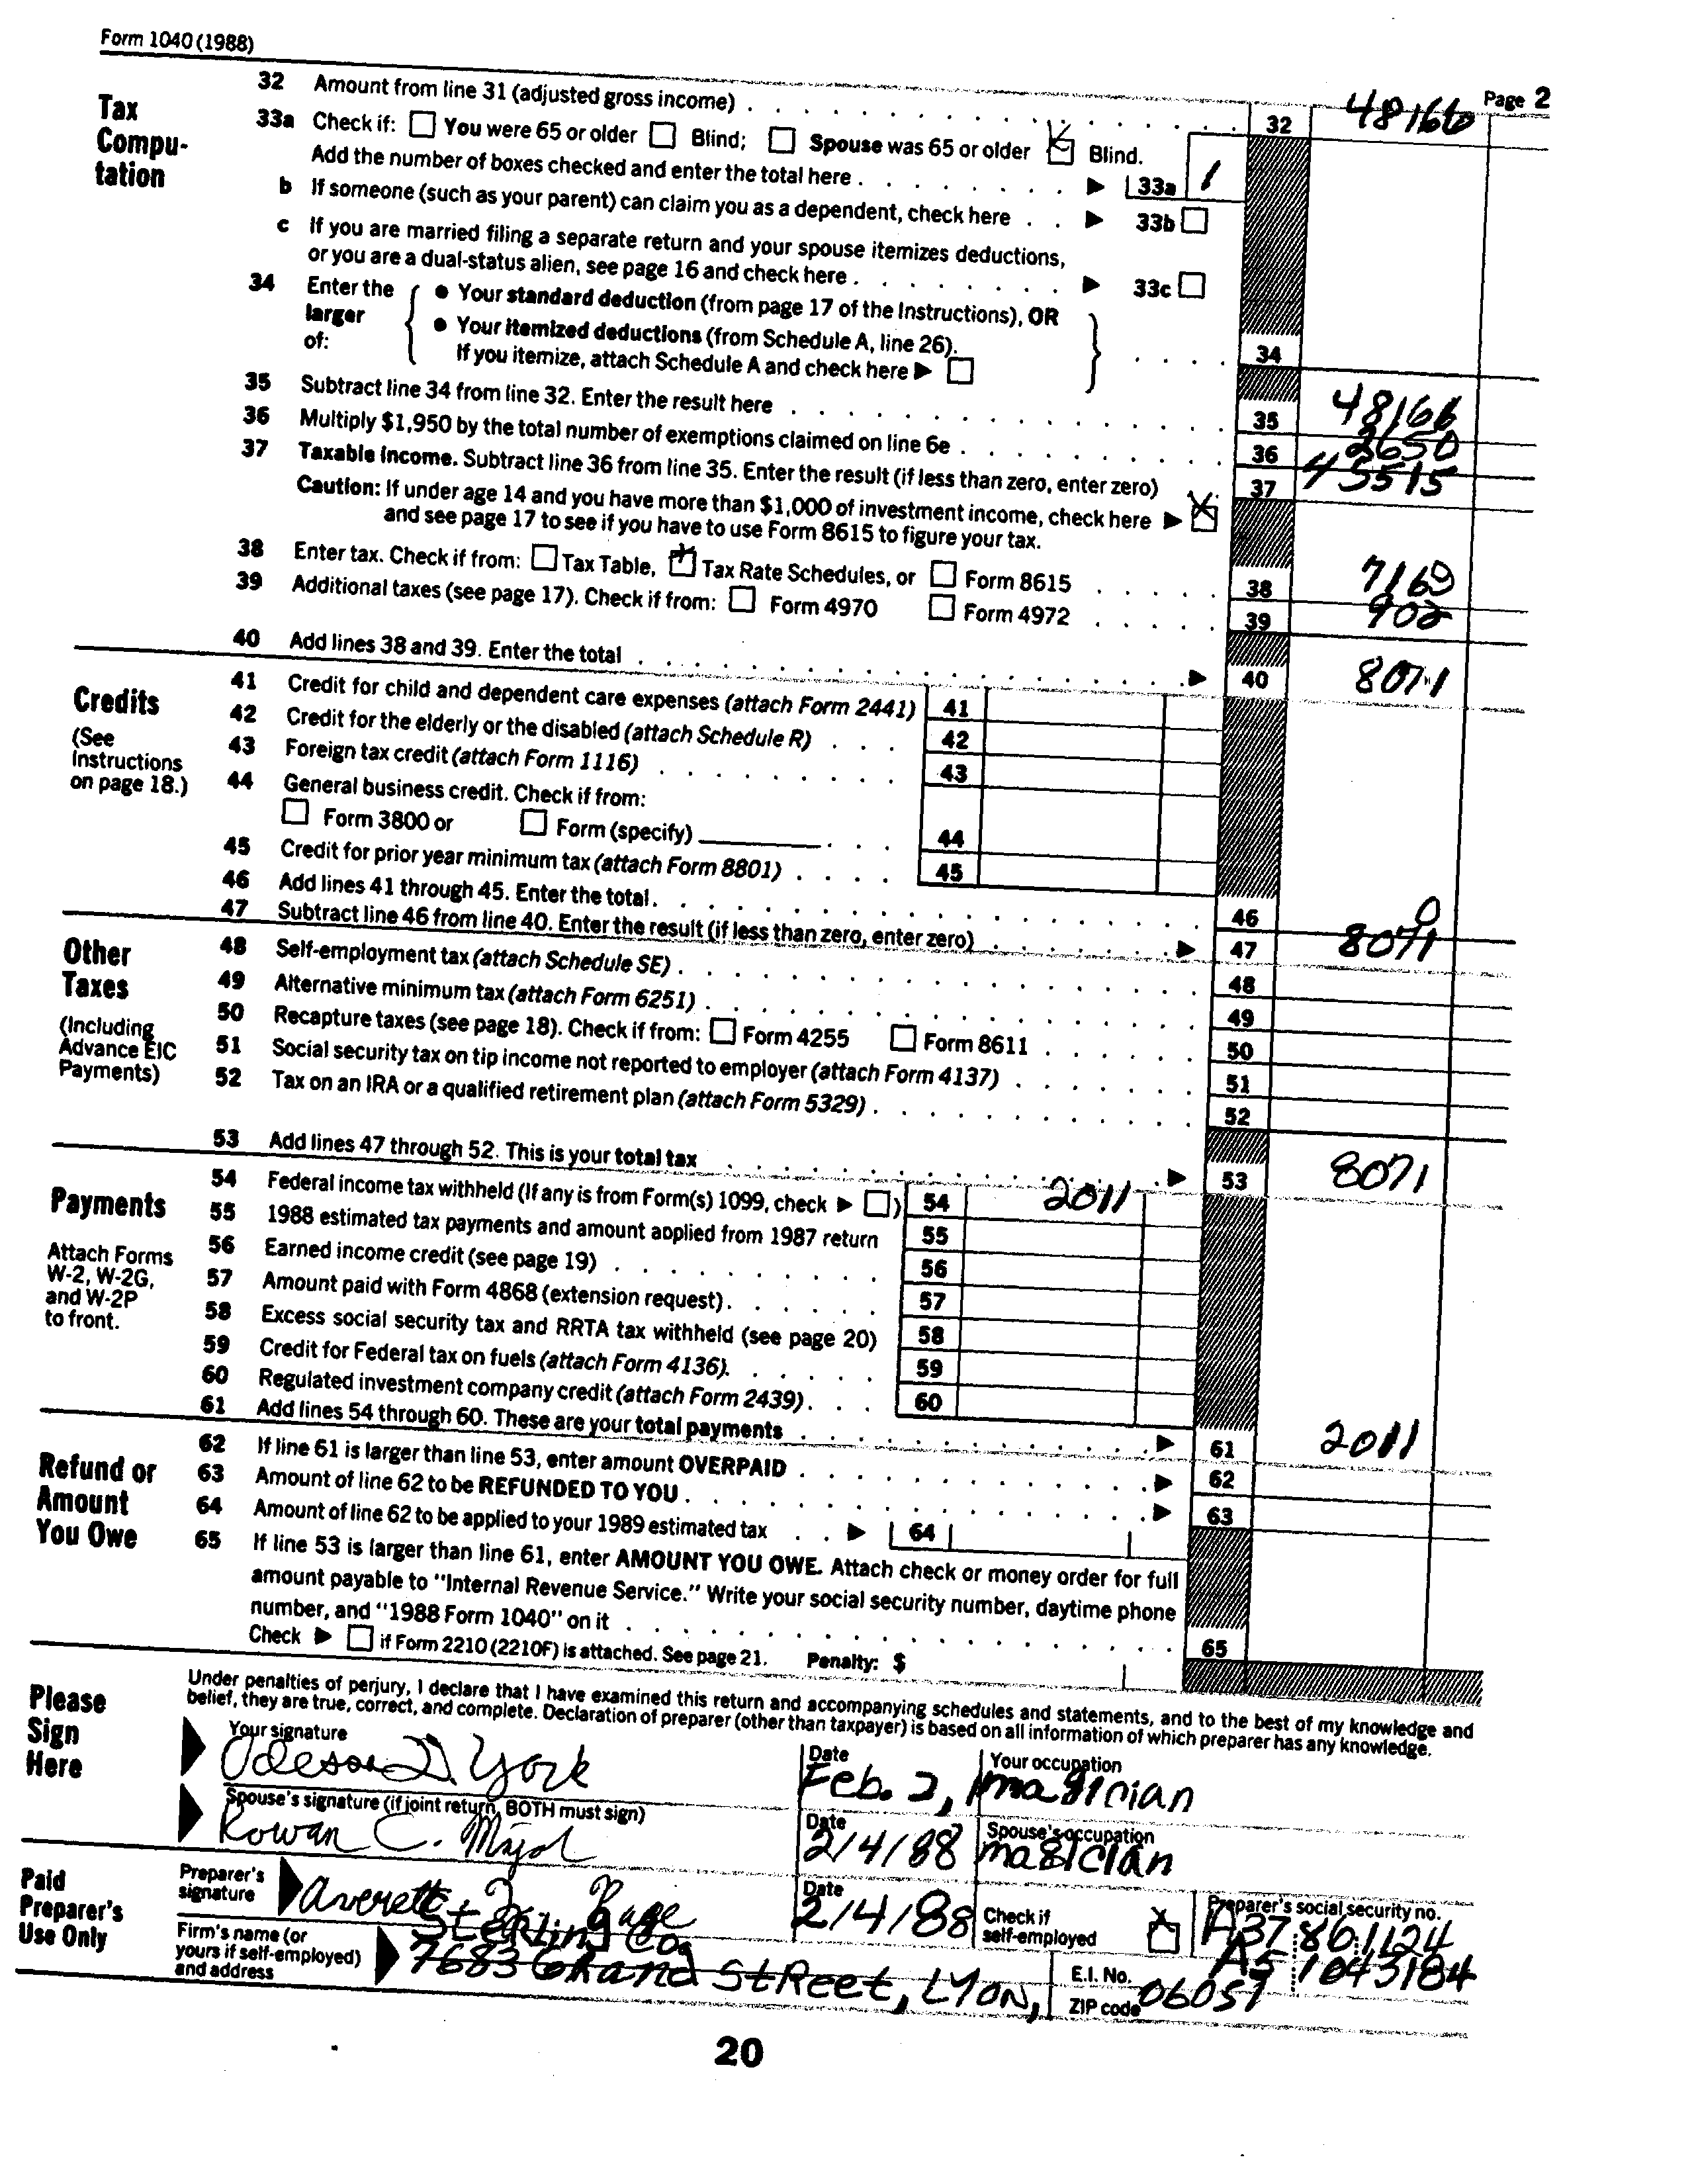 Form 1040 (1988)
Page 2
Tax Compu-tation
32 Amount from line 31 (adjusted gross income) . . . 32 48166
33a Check if: You were 65 or older Blind; Spouse was 65 or older Blind.
Add the number of boxes checked and enter the total here . . . 33a 1
b If someone (such as your parent) can claim you as a dependent, check here . . 33b
c If you are married filing a separate return and your spouse itemizes deductions,
or you are a dual-status alien, see page 16 and check here . . . 33c
34 Enter the larger of:
• Your standard deduction (from page 17 of the Instructions), OR
• Your itemized deductions (from Schedule A, line 26).
If you itemize, attach Schedule A and check here . . . 34
35 Subtract line 34 from line 32. Enter the result here . . . 35 48166
36 Multiply $1,950 by the total number of exemptions claimed on line 6e . . . 36 2650
37 Taxable income. Subtract line 36 from line 35. Enter the result (if less than zero, enter zero) 37 45515
Caution: If under age 14 and you have more than $1,000 of investment income, check here
and see page 17 to see if you have to use Form 8615 to figure your tax.
38 Enter tax. Check if from: Tax Table, Tax Rate Schedules, or Form 8615 . . . 38 7169
39 Additional taxes (see page 17). Check if from: Form 4970 Form 4972 . . . 39 902
40 Add lines 38 and 39. Enter the total . . . 40 8071
Credits
(See Instructions on page 18.)
41 Credit for child and dependent care expenses (attach Form 2441) 41
42 Credit for the elderly or the disabled (attach Schedule R) . . . 42
43 Foreign tax credit (attach Form 1116) . . . 43
44 General business credit. Check if from:
Form 3800 or Form (specify) . . . 44
45 Credit for prior year minimum tax (attach Form 8801) . . . 45
46 Add lines 41 through 45. Enter the total . . . 46 0
47 Subtract line 46 from line 40. Enter the result (if less than zero, enter zero) . . . 47 8071
Other Taxes
(Including Advance EIC Payments)
48 Self-employment tax (attach Schedule SE) . . . 48
49 Alternative minimum tax (attach Form 6251) . . . 49
50 Recapture taxes (see page 18). Check if from: Form 4255 Form 8611 . . . 50
51 Social security tax on tip income not reported to employer (attach Form 4137) . . . 51
52 Tax on an IRA or a qualified retirement plan (attach Form 5329) . . . 52
53 Add lines 47 through 52. This is your total tax . . . 53 8071
Payments
Attach Forms W-2, W-2G, and W-2P to front.
54 Federal income tax withheld (If any is from Form(s) 1099, check ) 54 2011
55 1988 estimated tax payments and amount applied from 1987 return 55
56 Earned income credit (see page 19) . . . 56
57 Amount paid with Form 4868 (extension request) . . . 57
58 Excess social security tax and RRTA tax withheld (see page 20) 58
59 Credit for Federal tax on fuels (attach Form 4136) . . . 59
60 Regulated investment company credit (attach Form 2439) . . . 60
61 Add lines 54 through 60. These are your total payments . . . 61 2011
Refund or Amount You Owe
62 If line 61 is larger than line 53, enter amount OVERPAID . . . 62
63 Amount of line 62 to be REFUNDED TO YOU . . . 63
64 Amount of line 62 to be applied to your 1989 estimated tax . . 64
65 If line 53 is larger than line 61, enter AMOUNT YOU OWE. Attach check or money order for full
amount payable to "Internal Revenue Service." Write your social security number, daytime phone
number, and "1988 Form 1040" on it . . . 65
Check if Form 2210 (2210F) is attached. See page 21. Penalty: $
Please Sign Here
Under penalties of perjury, I declare that I have examined this return and accompanying schedules and statements, and to the best of my knowledge and
belief, they are true, correct, and complete. Declaration of preparer (other than taxpayer) is based on all information of which preparer has any knowledge.
Your signature Date Your occupation
D. York Feb. 2, magician
Spouse's signature (if joint return, BOTH must sign) Date Spouse's occupation
Rowan C. Major 2/4/88 magician
Paid Preparer's Use Only
Preparer's signature Averett Page Date 2/4/88 Check if self-employed Preparer's social security no. A37 86 1124
Firm's name (or yours if self-employed) and address Sterling Co. E.I. No. A5 1043184
7683 Grand Street, Lyon, ZIP code 06051
20